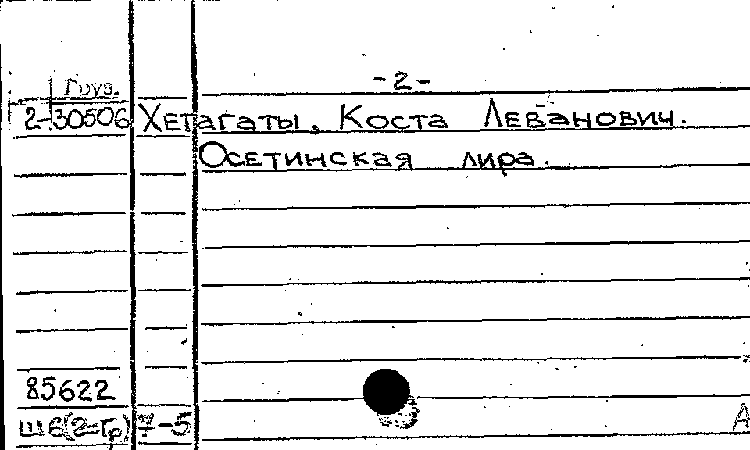 -2-
Груз.
2-30506 Хетагаты, Коста Леванович.
Осетинская лира.
85622
Ш6(2=Гр) 7-5
А